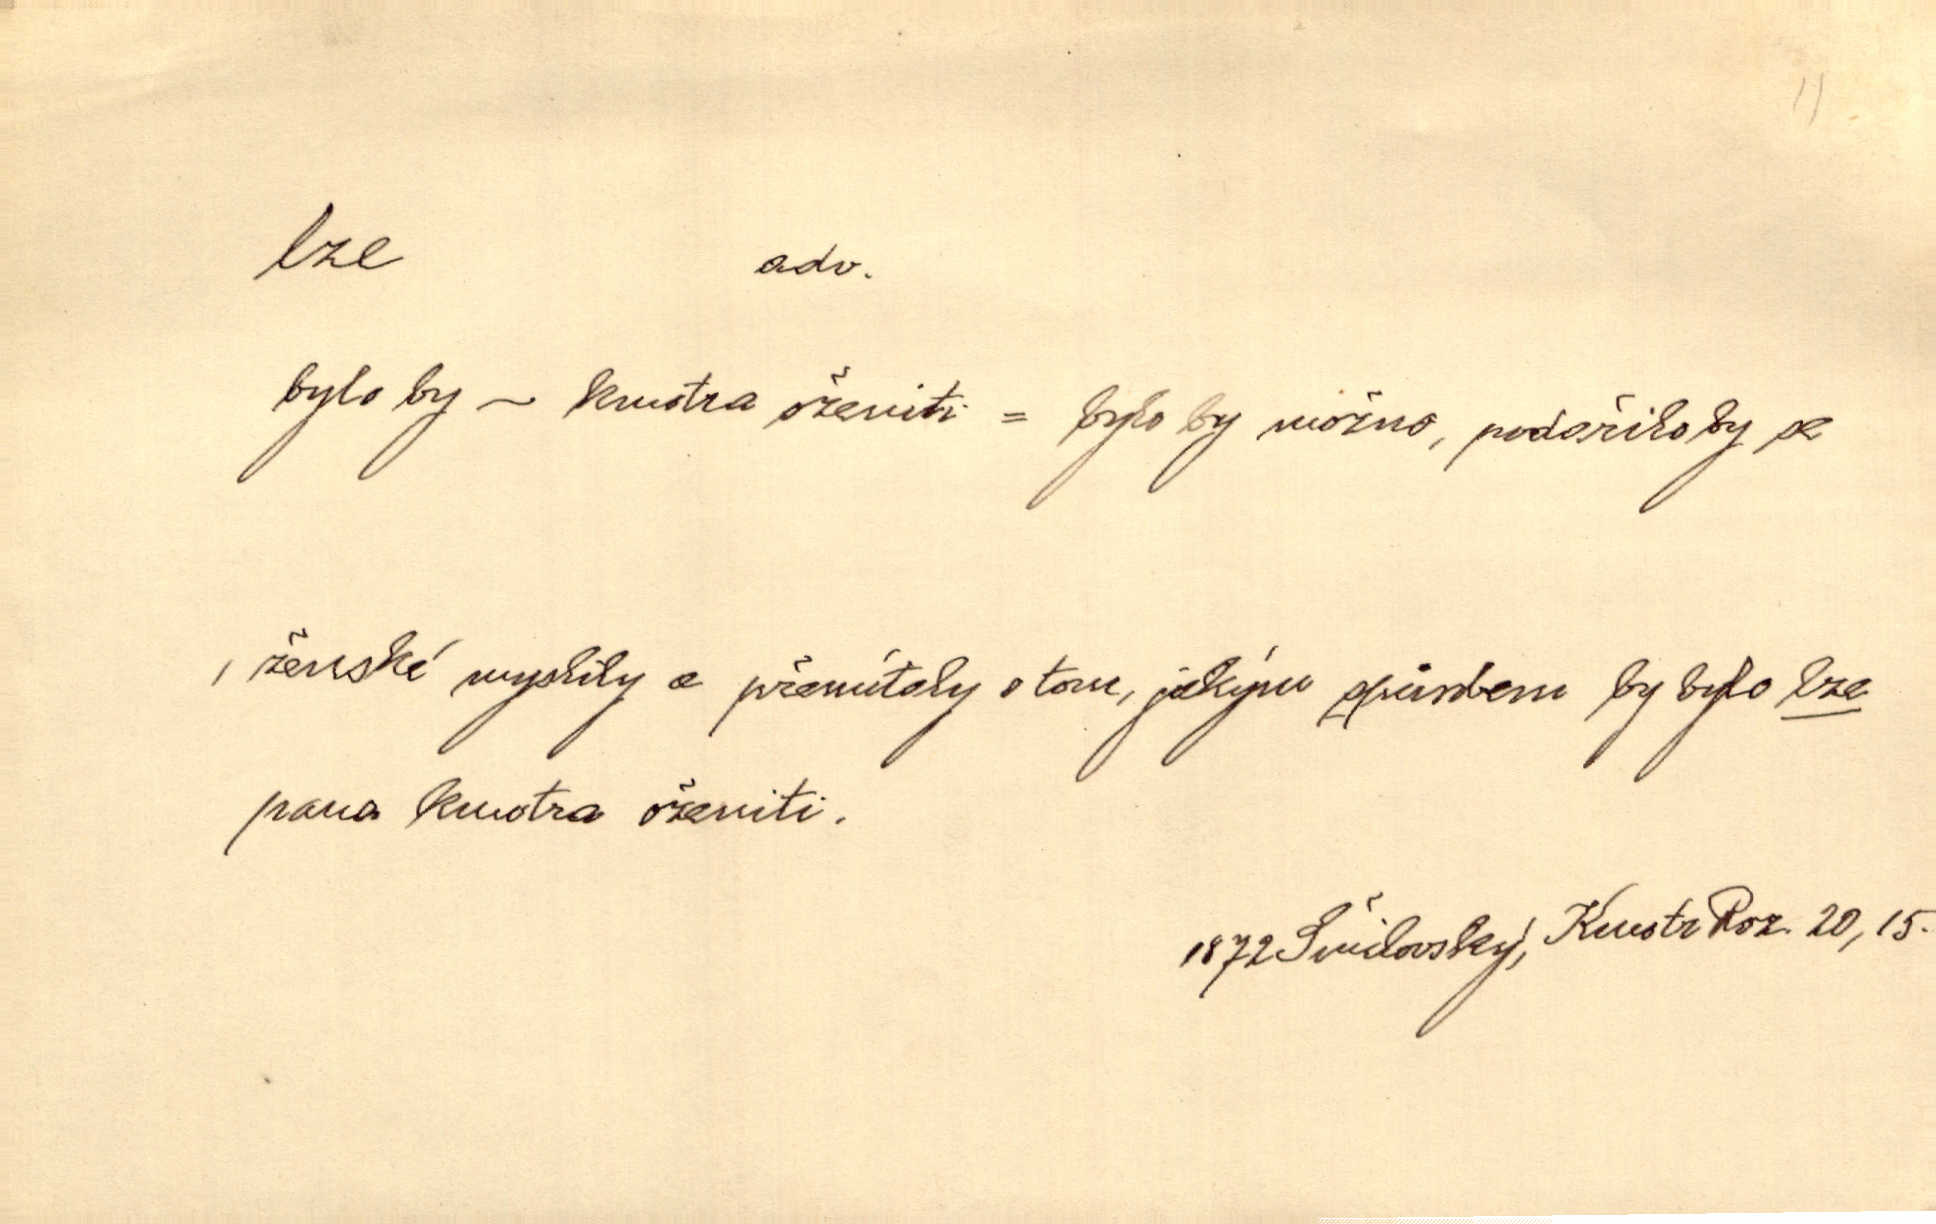 11
lze adv.
bylo by ~ kmotra oženiti = bylo by možno, podařilo by se
, ženské myslily a přemítaly o tom, jakým spůsobem by bylo lze
pana kmotra oženiti.
1872 Šmilovský, Kmotr Roz. 20, 15.